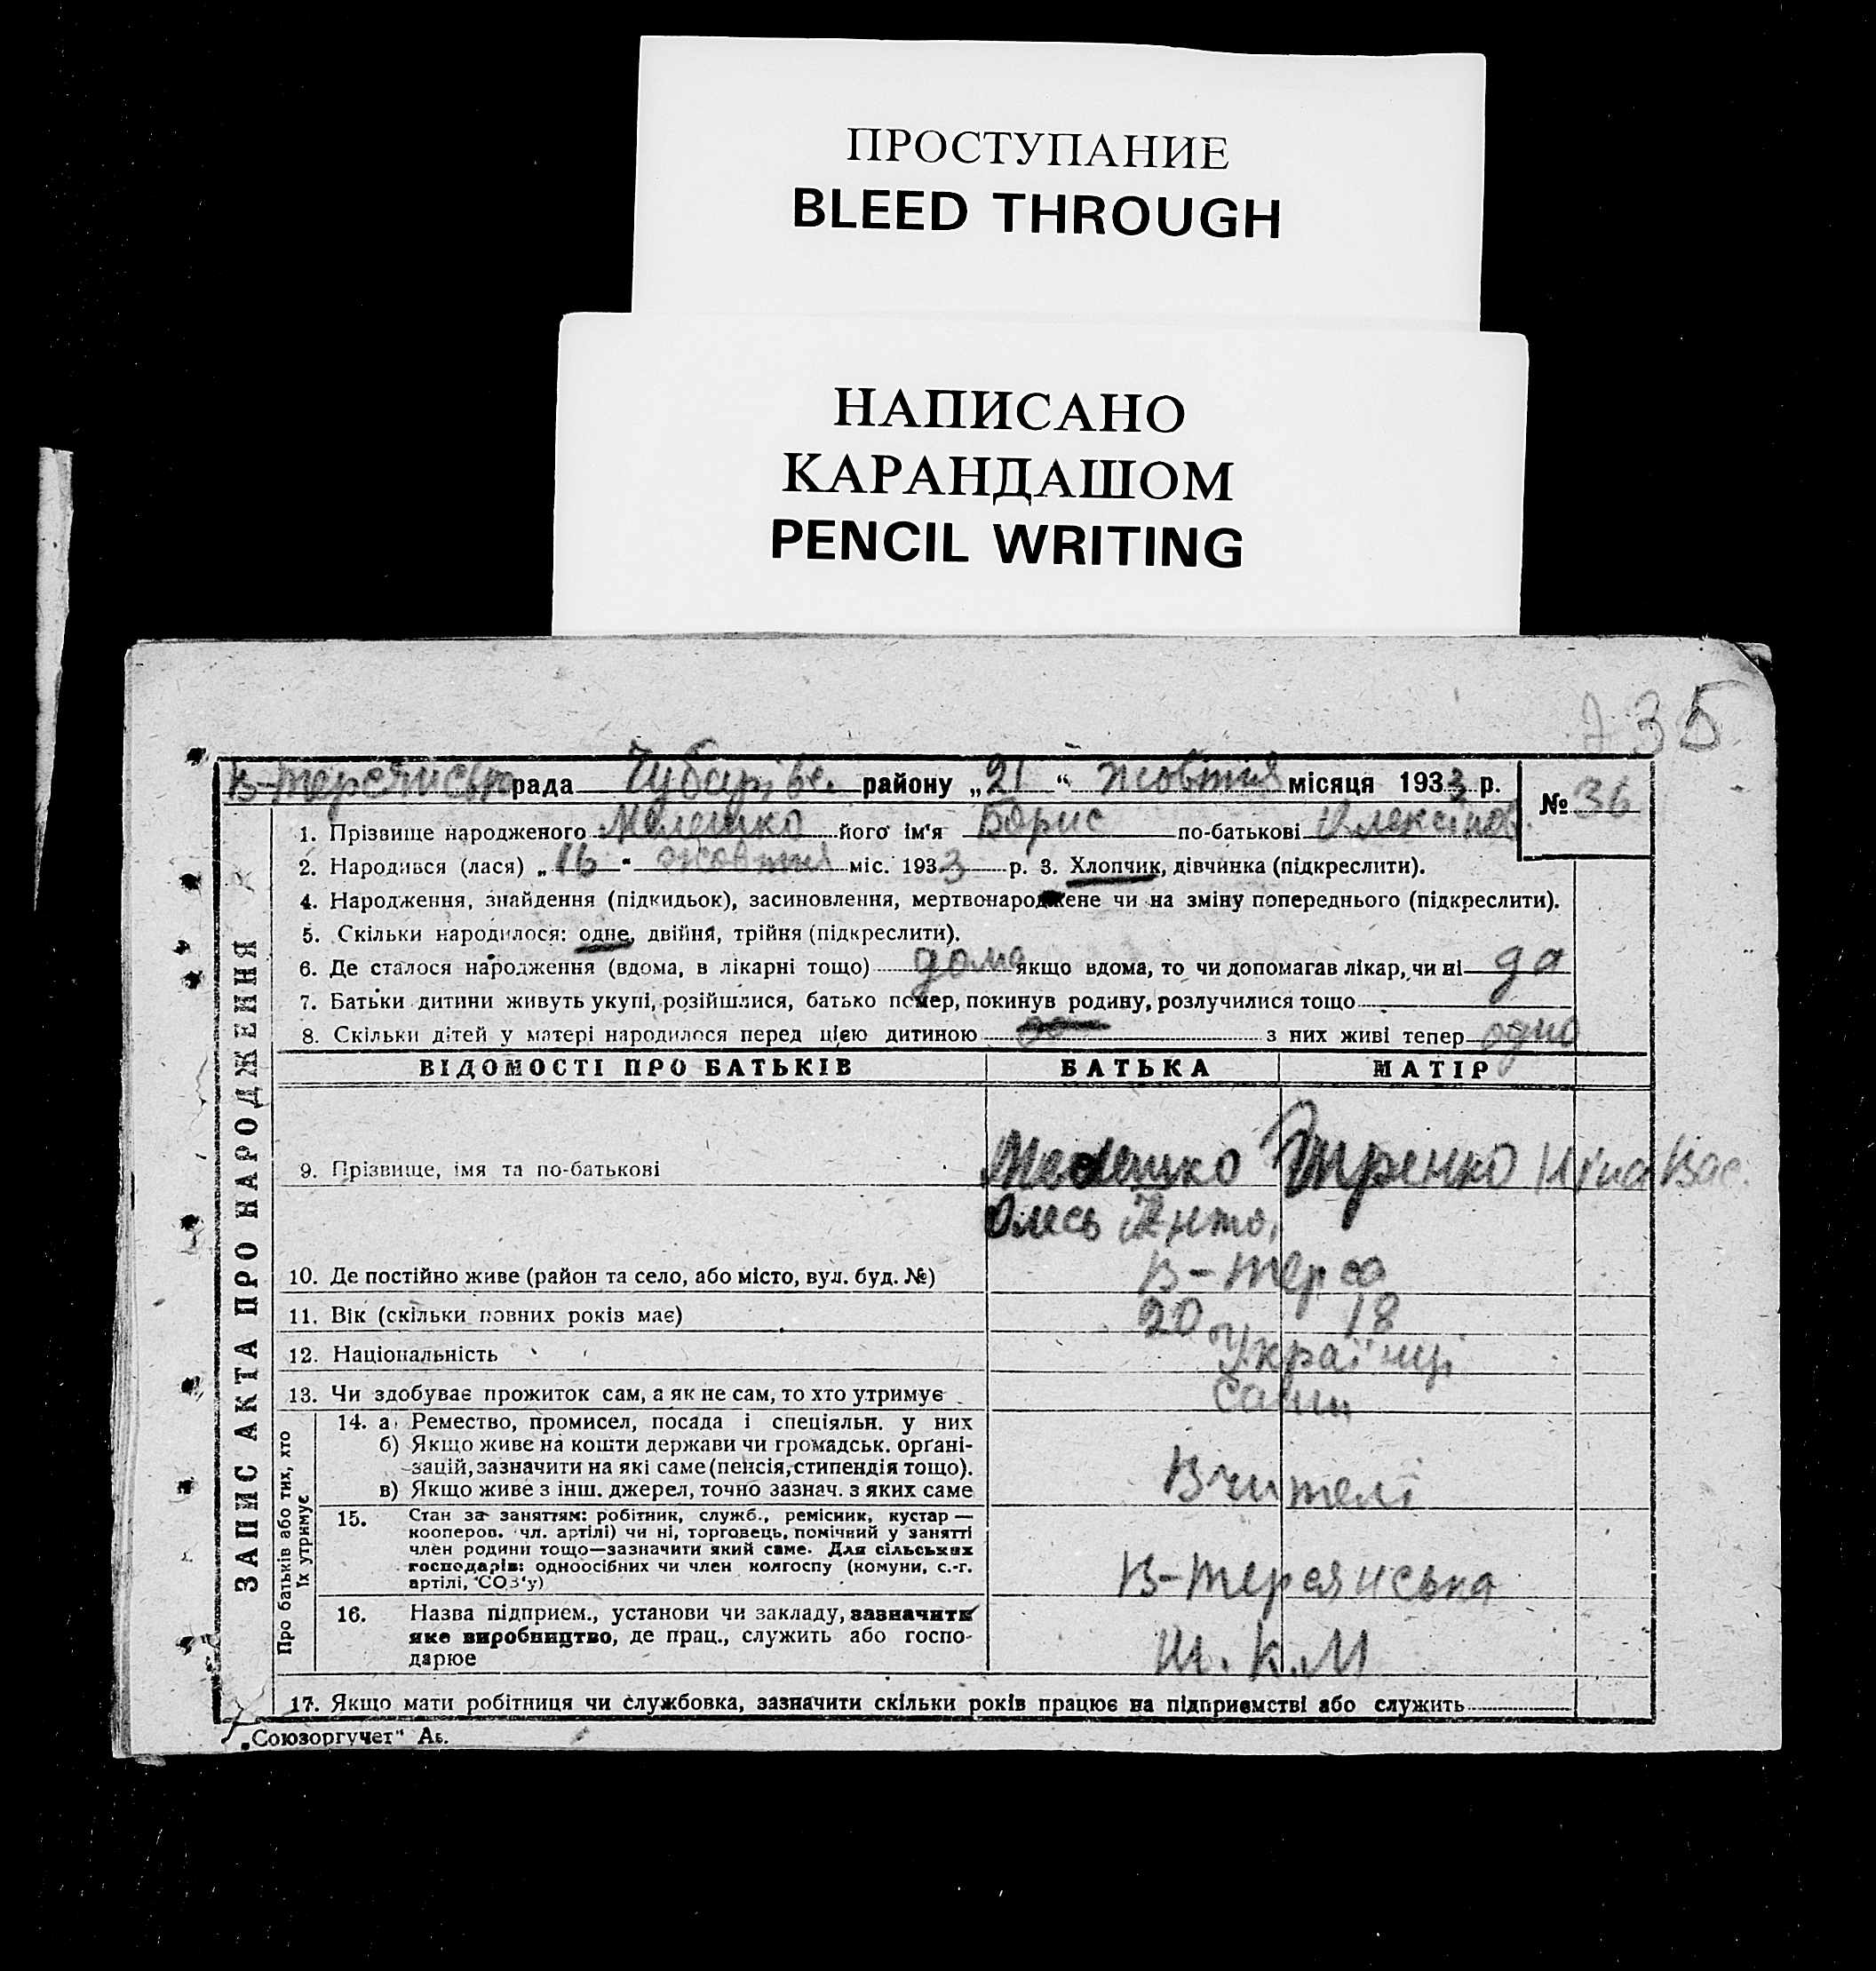 ПРОСТУПАНИЕ
BLEED THROUGH
НАПИСАНО
КАРАНДАШОМ
PENCIL WRITING
235
В-Терсянська рада Чубарівс. району „21“ жовтня місяця 1933 р.
№ 36
1. Прізвище народженого Мелешко його ім'я Борис по-батькові Олексійов.
2. Народився (лася) „16" жовтня міс. 1933 р. 3. Хлопчик, дівчинка (підкреслити).
4. Народження, знайдення (підкидьок), засиновлення, мертвонароджене чи на зміну попереднього (підкреслити).
5. Скільки народилося: одне, двійня, трійня (підкреслити).
6. Де сталося народження (вдома, в лікарні тощо) дома якщо вдома, то чи допомагав лікар, чи ні да
7. Батьки дитини живуть укупі, розійшлися, батько помер, покинув родину, розлучилися тощо
8. Скільки дітей у матері народилося перед цією дитиною з них живі тепер одно
ЗАПИС АКТА ПРО НАРОДЖЕННЯ
ВІДОМОСТІ ПРО БАТЬКІВ БАТЬКА МАТІР
9. Прізвище, імя та по-батькові Мелешко Ніна Вас.
Олесь
10. Де постійно живе (район та село, або місто, вул. буд. №) В-Терса
11. Вік (скільки повних років має) 20 18
12. Національність Українці
13. Чи здобуває прожиток сам, а як не сам, то хто утримує сами
Про батьків або тих, хто
їх утримує
14. а) Ремество, промисел, посада і спеціяльн. у них
б) Якщо живе на кошти держави чи громадськ. органі-
зацій, зазначити на які саме (пенсія, стипендія тощо).
в) Якщо живе з інш. джерел, точно зазнач. з яких саме
Вчителі
15. Стан за заняттям: робітник, служб., ремісник, кустар —
кооперов. чл. артілі) чи ні, торговець, помічний у занятті
член родини тощо—зазначити який саме. Для сільських
господарів: одноосібних чи член колгоспу (комуни, с.-г.
артілі, СОЗ'у)
В-Терсянська
16. Назва підприєм., установи чи закладу, зазначити
яке виробництво, де прац., служить або госпо-
дарює
Ш.К.М
17. Якщо мати робітниця чи службовка, зазначити скільки років працює на підприємстві або служить
„Союзоргучет"